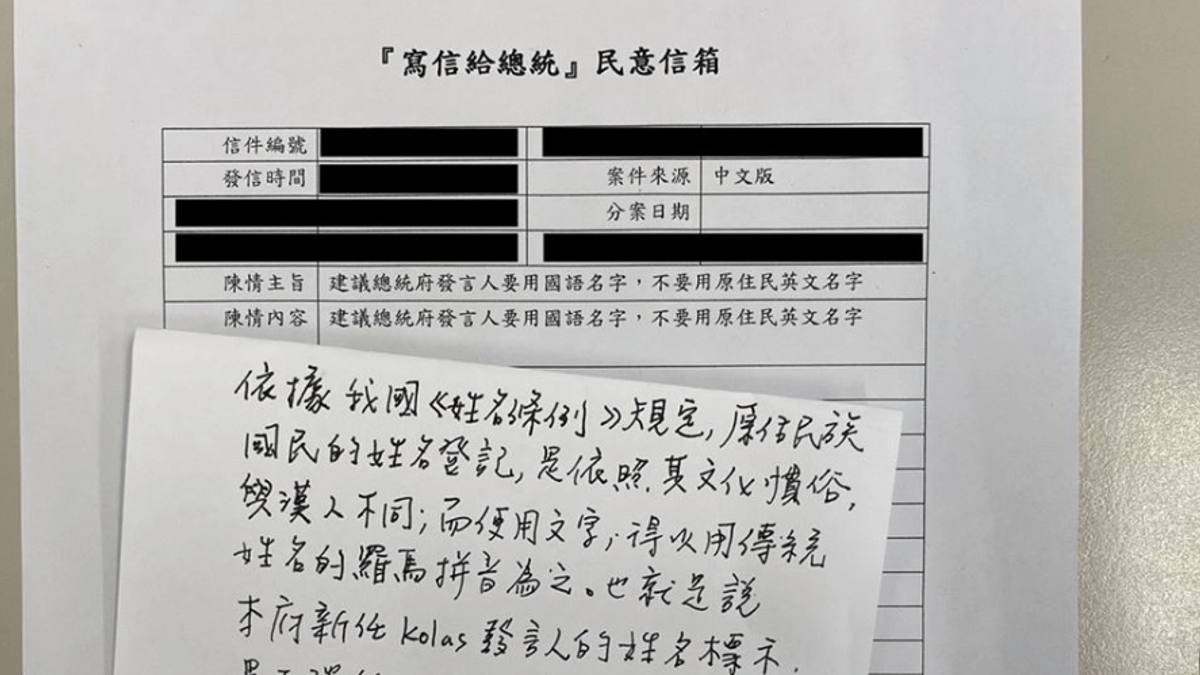 『寫信給總統』民意信箱
信件編號
發信時間
案件來源 中文版
分案日期
陳情主旨 建議總統府發言人要用國語名字，不要用原住民英文名字
陳情內容 建議總統府發言人要用國語名字，不要用原住民英文名字
依據我國《姓名條例》規定，原住民族
國民的姓名登記，是依照其文化慣俗，
與漢人不同；而使用文字，得以用傳統
姓名的羅馬拼音為之。也就是說
本府新任Kolas發言人的姓名標示，